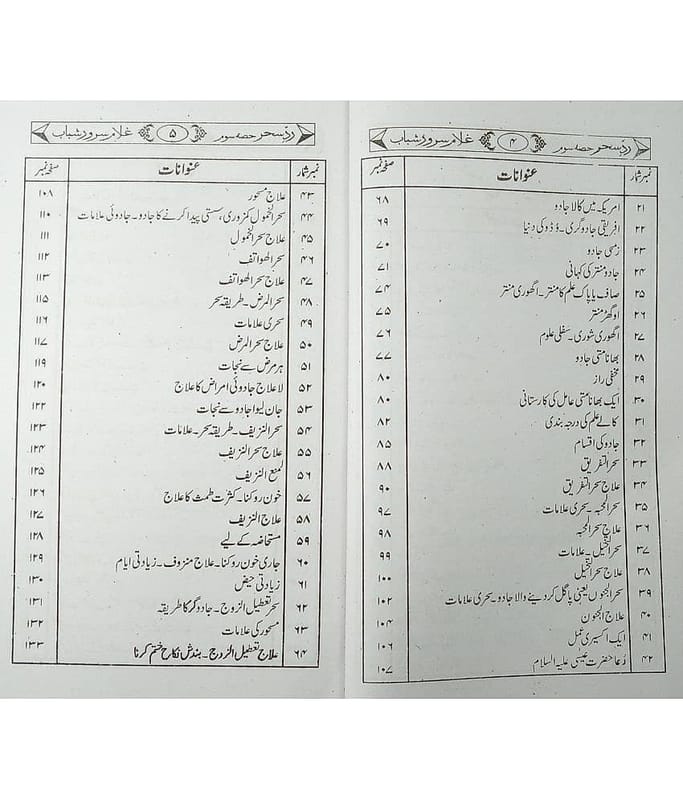 ردِّ سحر حصہ سوم ۴ غلام سرور شباب
نمبر شمار عنوانات صفحہ نمبر
۲۱ امریکہ میں کالا جادو ۶۸
۲۲ افریقی جادوگری۔ وُڈو کی دنیا ۶۹
۲۳ رسمی جادو ۷۰
۲۴ جادو منتر کی کہانی ۷۱
۲۵ صاف یا پاک علم کا منتر۔ اگھوری منتر ۷۴
۲۶ اوگھڑ منتر ۷۵
۲۷ اگھوری شوری۔ سفلی علوم ۷۶
۲۸ بھانامتی جادو ۷۷
۲۹ مخفی راز ۸۰
۳۰ ایک بھانامتی عامل کی کارستانی ۸۰
۳۱ کالے علم کی درجہ بندی ۸۲
۳۲ جادو کی اقسام ۸۵
۳۳ سحر التفریق ۸۸
۳۴ علاج سحر التفریق ۹۰
۳۵ سحر المحبہ۔ سحری علامات ۹۷
۳۶ علاج سحر المحبہ ۹۸
۳۷ سحر التخیل۔ علامات ۹۹
۳۸ علاج سحر التخیل ۱۰۰
۳۹ سحر الجنون یعنی پاگل کر دینے والا جادو۔ سحری علامات ۱۰۲
۴۰ علاج الجنون ۱۰۴
۴۱ ایک اکسیری عمل ۱۰۶
۴۲ دُعا حضرت عیسیٰ علیہ السلام ۱۰۷
ردِّ سحر حصہ سوم ۵ غلام سرور شباب
نمبر شمار عنوانات صفحہ نمبر
۴۳ علاج مسحور ۱۰۸
۴۴ سحر الخمول کمزوری، سستی پیدا کرنے کا جادو۔ جادوئی علامات ۱۱۰
۴۵ علاج سحر الخمول ۱۱۱
۴۶ سحر الھواتف ۱۱۲
۴۷ علاج سحر الھواتف ۱۱۳
۴۸ سحر المرض۔ طریقہ سحر ۱۱۵
۴۹ سحری علامات ۱۱۶
۵۰ علاج سحر المرض ۱۱۷
۵۱ ہر مرض سے نجات ۱۱۹
۵۲ لاعلاج جادوئی امراض کا علاج ۱۲۰
۵۳ جان لیوا جادو سے نجات ۱۲۲
۵۴ سحر النزیف۔ طریقہ سحر۔ علامات ۱۲۳
۵۵ علاج سحر النزیف ۱۲۴
۵۶ لمنع النزیف ۱۲۵
۵۷ خون روکنا۔ کثرت طمث کا علاج ۱۲۶
۵۸ علاج النزیف ۱۲۷
۵۹ مستحاضہ کے لیے ۱۲۸
۶۰ جاری خون روکنا۔ علاج منزوف۔ زیادتی ایام ۱۲۹
۶۱ زیادتی حیض ۱۳۰
۶۲ سحر تعطیل الزوج۔ جادوگر کا طریقہ ۱۳۱
۶۳ مسحور کی علامات ۱۳۲
۶۴ علاج تعطیل الزوج۔ بندش نکاح ختم کرنا ۱۳۳